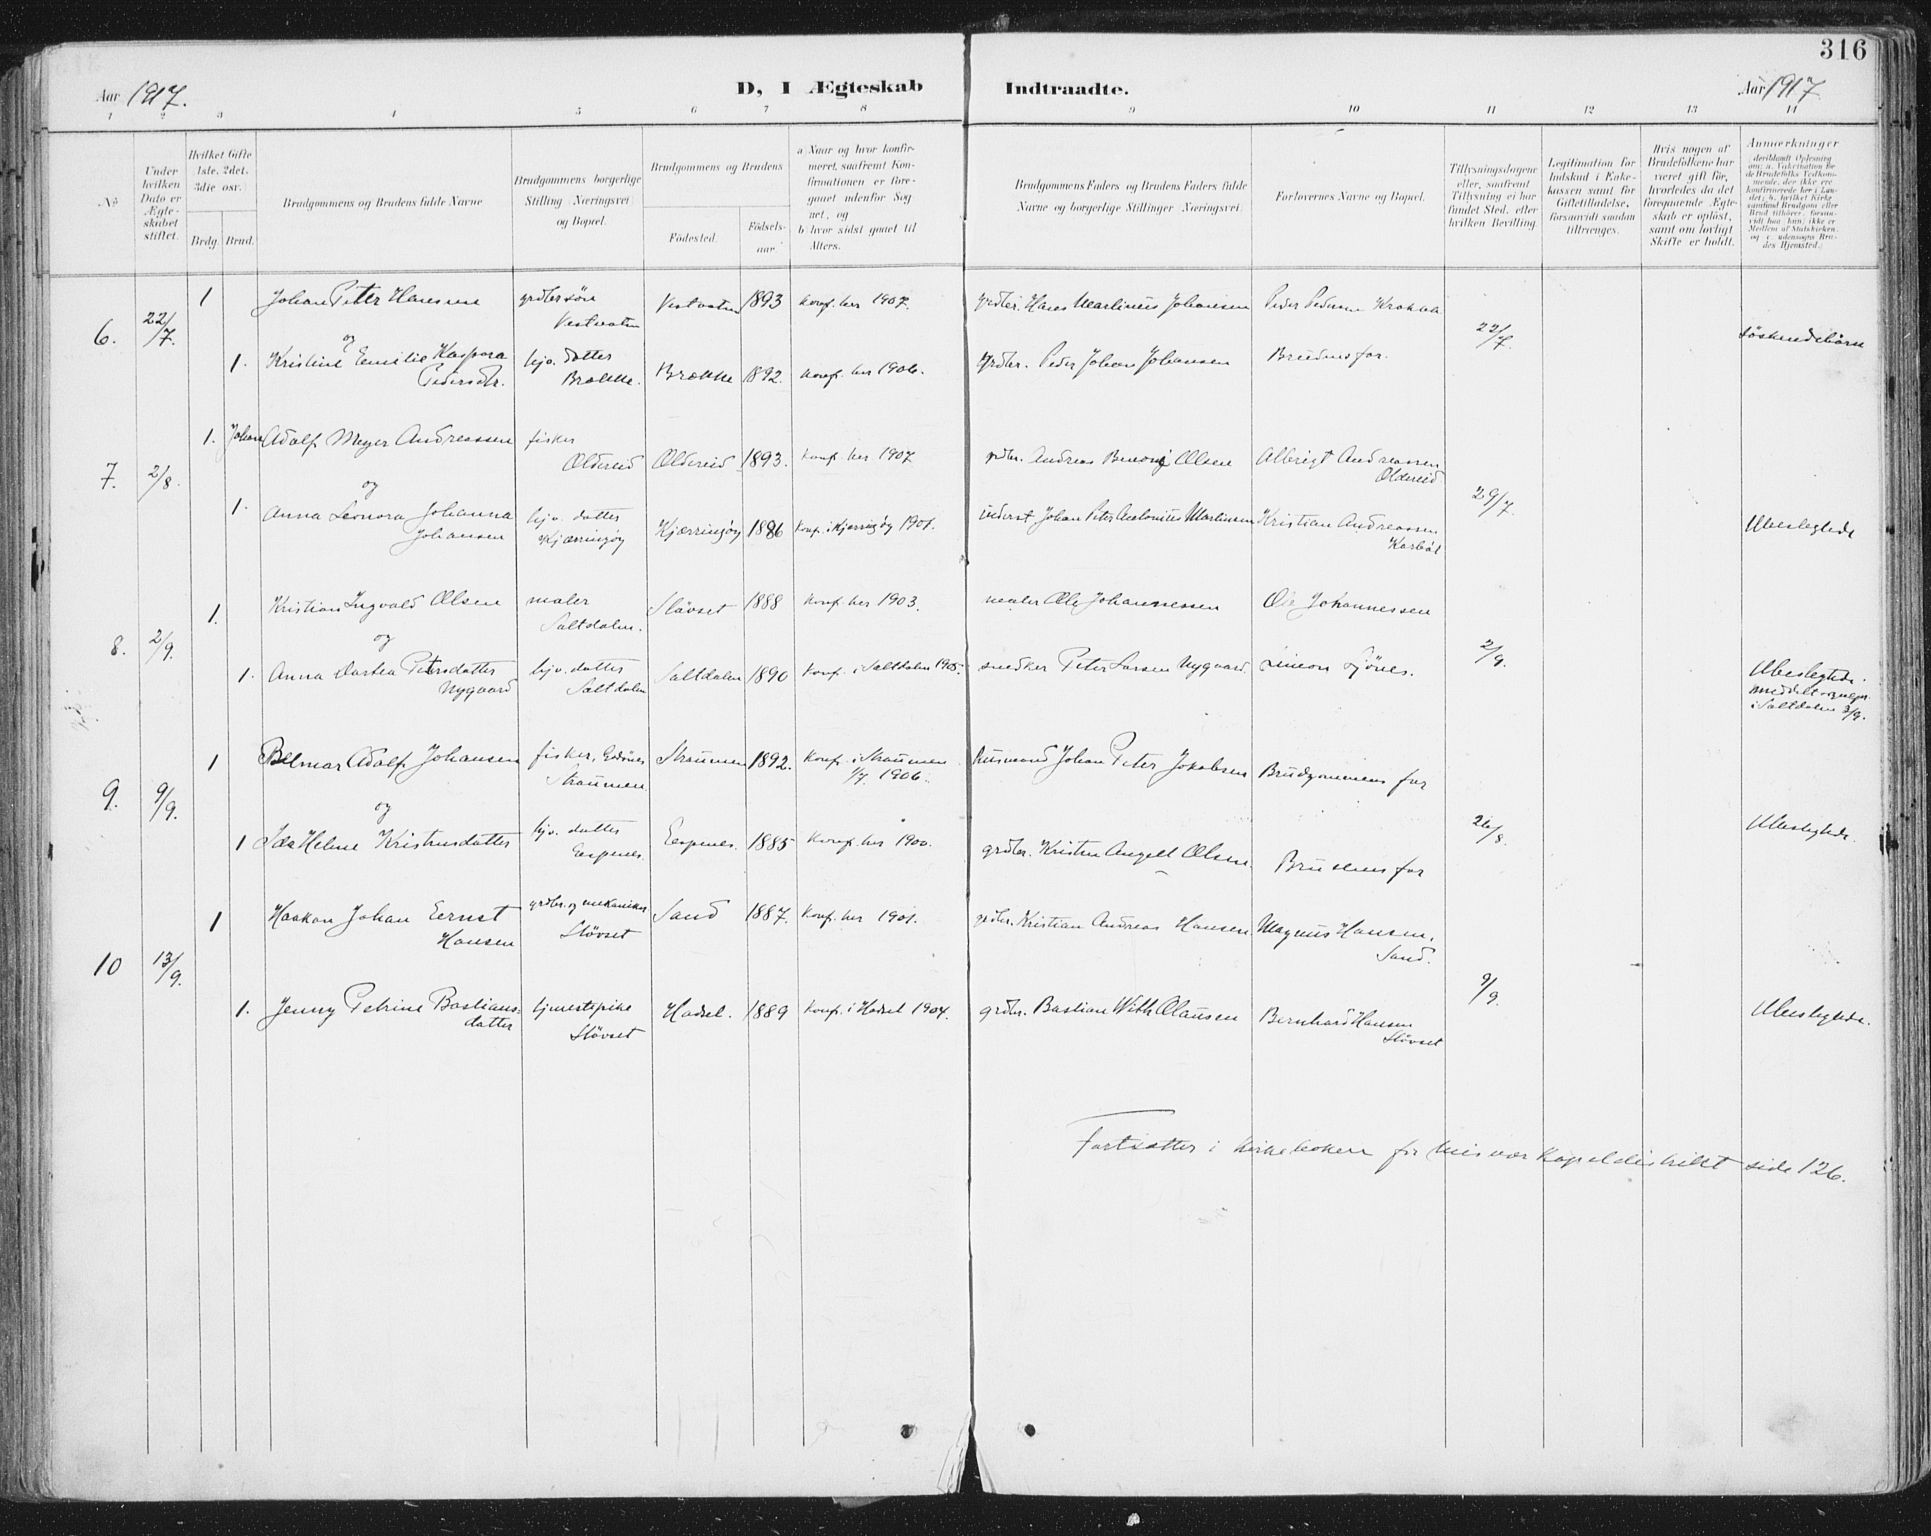 316
Aar 1917.
D, I Ægteskab
Indtraadte.
Aar 1917
1 2 3 4 5 6 7 8 9 10 11 12 13 14
No.
Under hvilken Dato er Ægteskabet stiftet.
Hvilket Gifte 1ste, 2det, 3die osv.
Brdg. Brud.
Brudgommens og Brudens fulde Navne
Brudgommens borgerlige Stilling (Næringsvei) og Bopæl.
Brudgommens og Brudens
Fødested. Fødselsaar.
a) Naar og hvor konfirmeret, saafremt Konfirmationen er foregaaet udenfor Sognet, og
b) hvor sidst gaaet til Alters.
Brudgommens Faders og Brudens Faders fulde Navne og borgerlige Stillinger (Næringsvei)
Forlovernes Navne og Bopæl.
Tillysningsdagene eller, saafremt Tillysning ei har fundet Sted, efter hvilken Bevilling.
Legitimation for Indskud i Enkekassen samt for Giftetilladelse, forsaavidt saadan tiltrænges.
Hvis nogen af Brudefolkene har været gift før, hvorledes da det foregaaende Ægteskab er opløst, samt om lovligt Skifte er holdt.
Anmærkninger
6. 22/7.
1 Johan Peter Hansen grdbr søn Vestvatn Vestvatn 1893 konf. her 1907. grdbr. Hans Martinus Johansen Peder Pedersen
og
1. Kristine Emilie Kaspara Pedersdtr. hjv. datter Brække. Brække 1892. konf. her 1906. grdbr. Peder Johan Johansen Brudens far. 22/7. Søskendebørn
7. 2/8.
1. Johan Adolf Meyer Andreassen fisker Oldereid Oldereid 1893. konf. her 1907 grdbr. Andreas Benoni Olsen Albrigt Andreassen Oldereid
og
1. Anna Leonora Johanna Johansen hjv. datter Kjærringøy Kjærringøy 1886 konf. i Kjærringøy 1901. inderst Johan Peter Antonius Martinsen Kristian Andreassen 29/7. Ubeslegtede
8. 2/9.
1. Kristian Ingvald Olsen maler Saltdalen. Støvset 1888 konf. her 1903. maler Ole Johannessen Ole Johannessen
og
1. Anna Dortea Petersdatter Nygaard hjv. datter Saltdalen Saltdalen 1890 konf. i Saltdalen 1905. snedker Peter Larsen Nygaard. Simon 2/9. Ubeslegtede.
i Saltdalen 3/9.
9. 9/9.
1 Belmar Adolf Johansen fisker, Godønes Straumen. Straumen 1892. konf. i Straumen 1/7 1906. husmand Johan Peter Jakobsen Brudgommens far
og
1 Ida Helene Kristensdatter hjv. datter Eespenes. Eespenes. 1885 konf. her 1900. grdbr. Kristen Angell Olsen. Brudens far 26/8. Ubeslegtede.
10 13/9.
1 Haakon Johan Eernst Hansen grdbr. og mekaniker Støvset Sand 1887. konf. her 1901. grdbr. Kristian Andreas Hansen. Magnus Hansen, Sand.
1. Jenny Petrine Bastiansdatter tjenestepike Støvset Hadsel. 1889 konf. i Hadsel 1904. grdbr. Bastian With Olausen Bernhard Hansen Støvset 9/9. Ubeslegtede.
Fortsætter i kirkeboken for Misvær kapeldistrikt side 126.